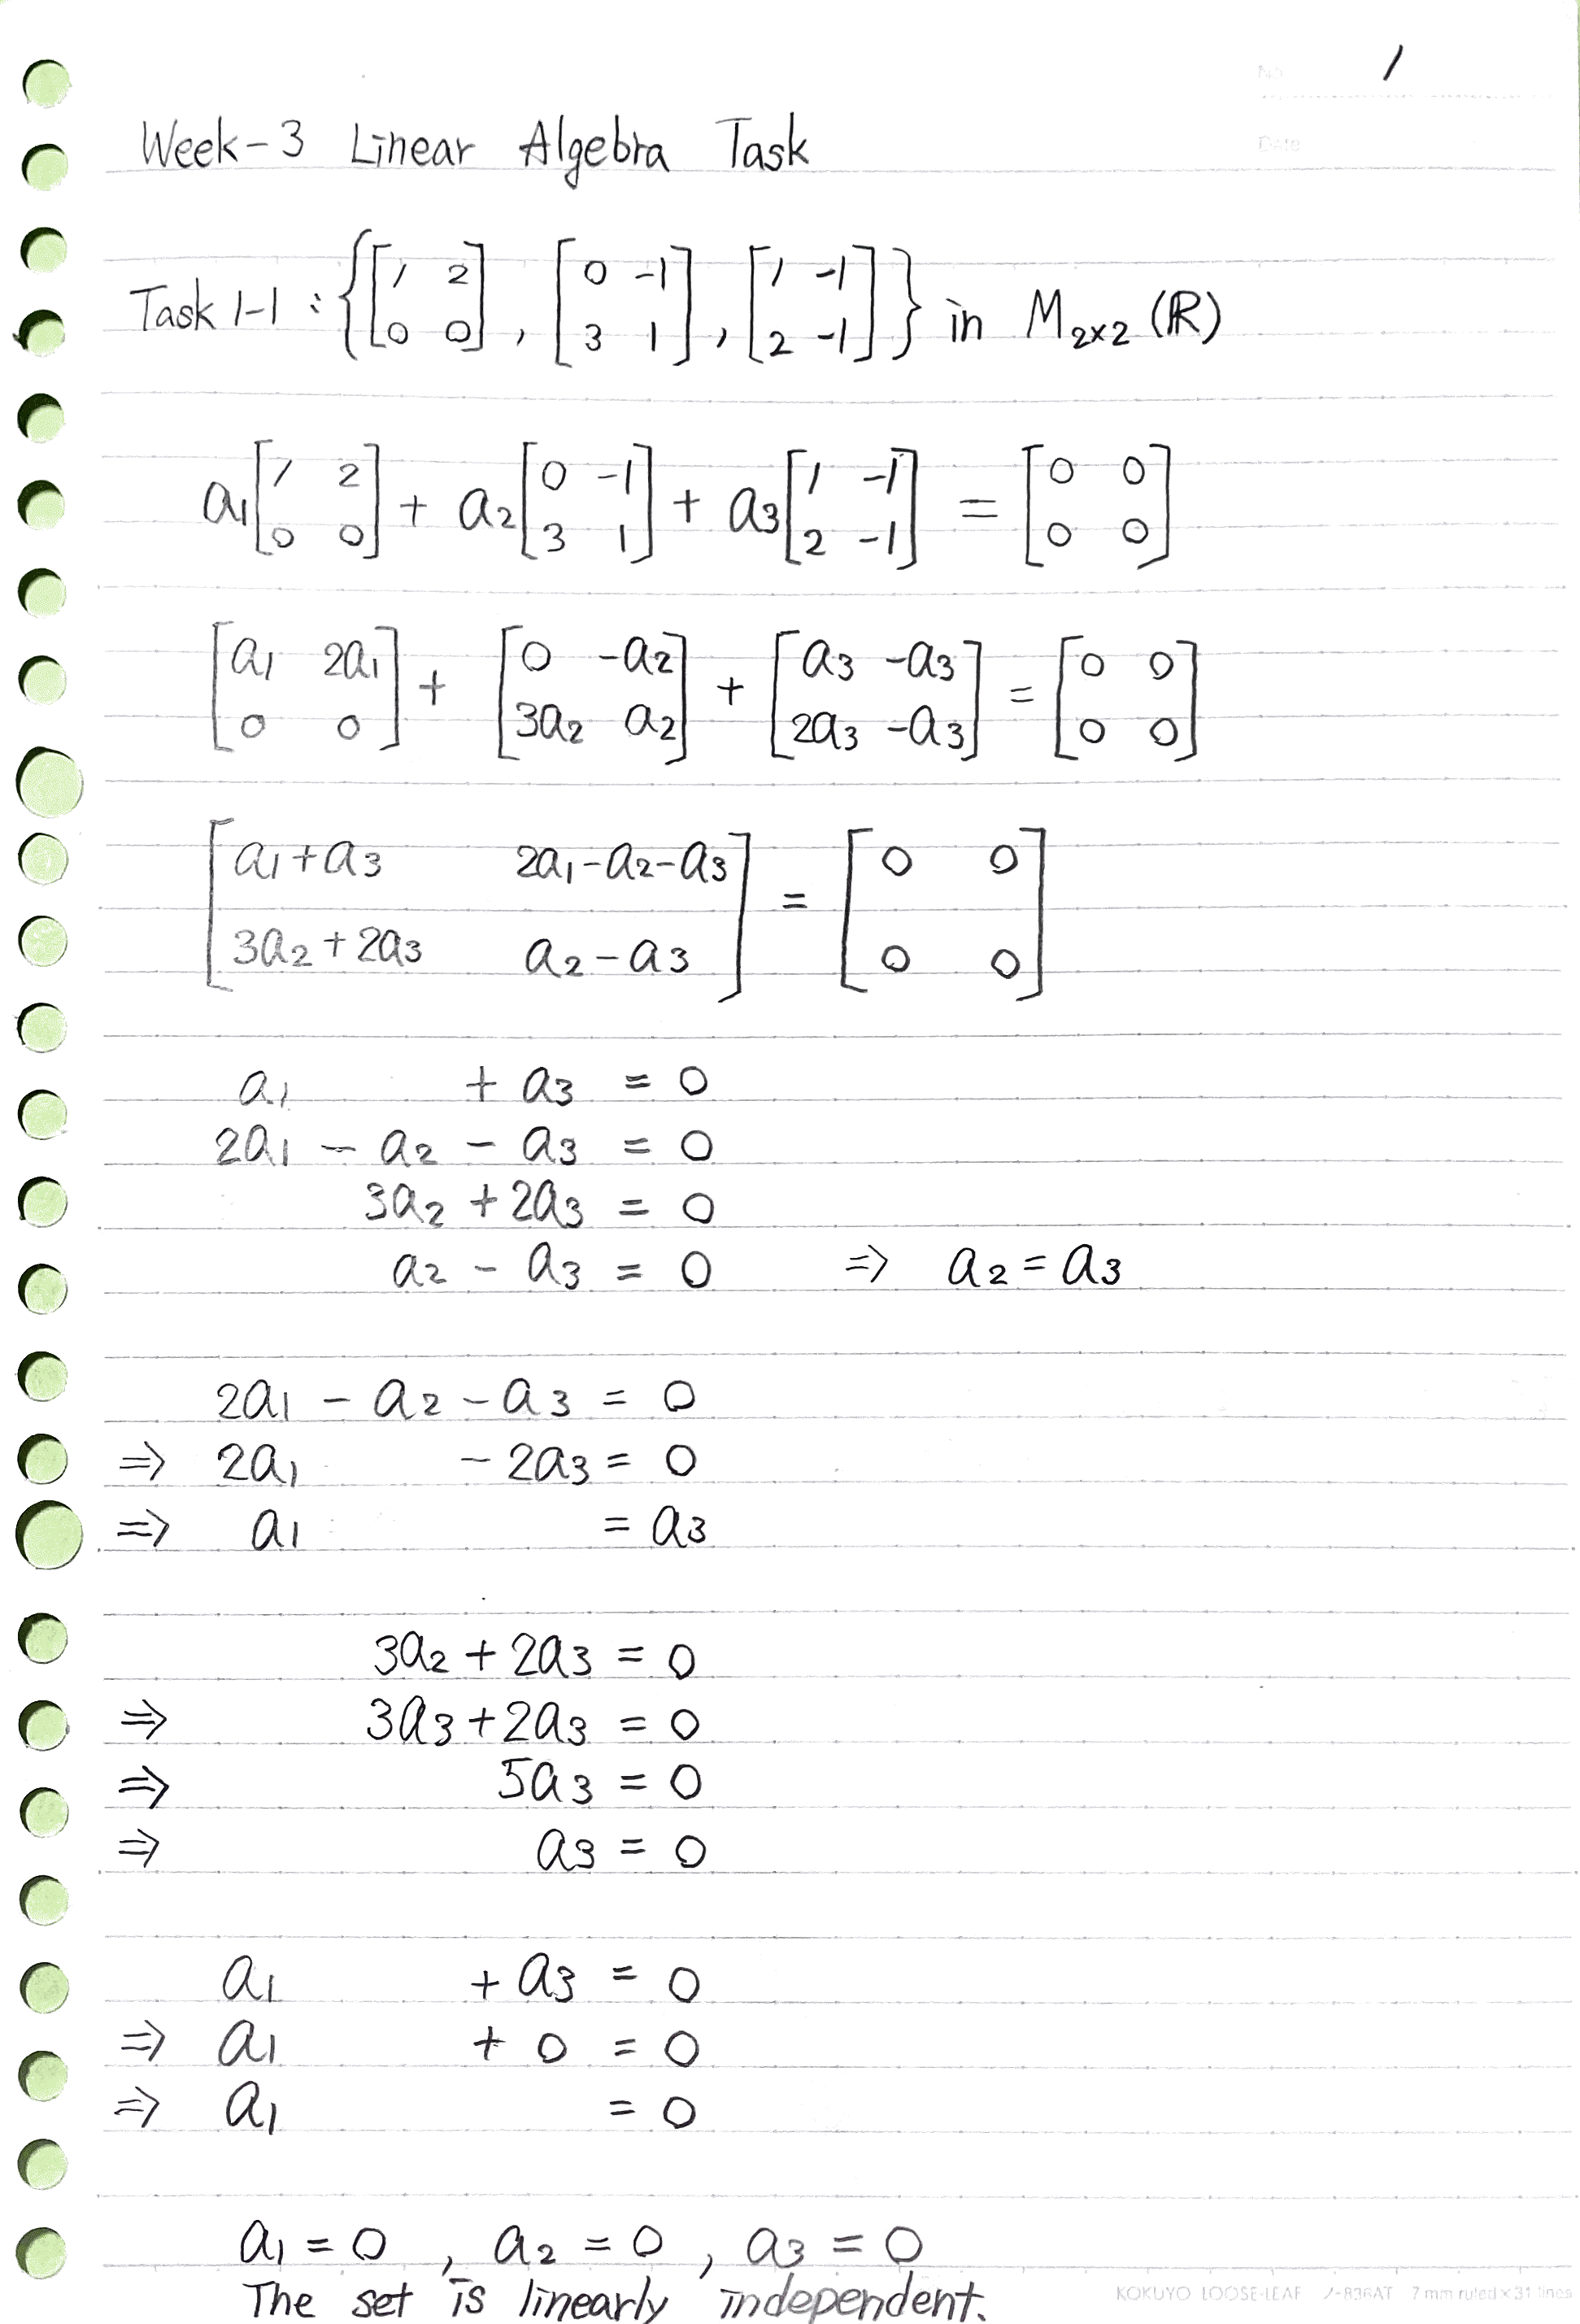 1
No.
Date
Week-3 Linear Algebra Task
Task 1-1 : {[1 2; 0 0], [0 -1; 3 1], [1 -1; 2 -1]} in M₂ₓ₂ (ℝ)
a₁[1 2; 0 0] + a₂[0 -1; 3 1] + a₃[1 -1; 2 -1] = [0 0; 0 0]
[a₁ 2a₁; 0 0] + [0 -a₂; 3a₂ a₂] + [a₃ -a₃; 2a₃ -a₃] = [0 0; 0 0]
[a₁+a₃ 2a₁-a₂-a₃; 3a₂+2a₃ a₂-a₃] = [0 0; 0 0]
a₁ + a₃ = 0
2a₁ - a₂ - a₃ = 0
3a₂ + 2a₃ = 0
a₂ - a₃ = 0 ⇒ a₂ = a₃
2a₁ - a₂ - a₃ = 0
⇒ 2a₁ - 2a₃ = 0
⇒ a₁ = a₃
3a₂ + 2a₃ = 0
⇒ 3a₃ + 2a₃ = 0
⇒ 5a₃ = 0
⇒ a₃ = 0
a₁ + a₃ = 0
⇒ a₁ + 0 = 0
⇒ a₁ = 0
a₁ = 0 , a₂ = 0 , a₃ = 0
The set is linearly independent.
KOKUYO LOOSE-LEAF ノ-836AT 7 mm ruled × 31 lines